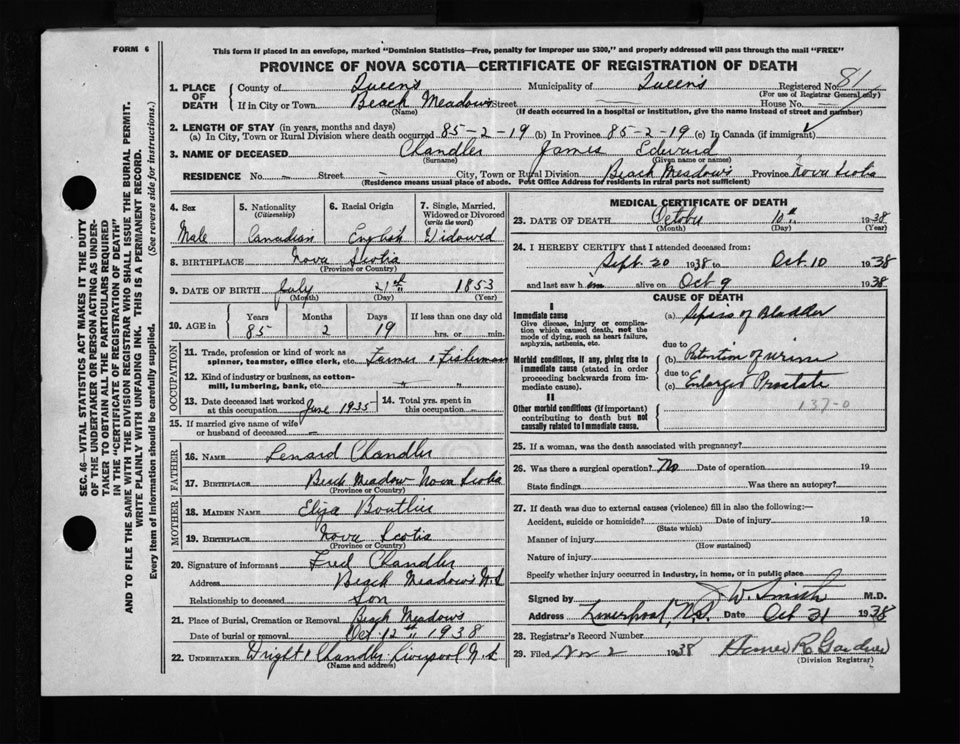 FORM 6
This form if placed in an envelope, marked "Dominion Statistics—Free, penalty for improper use $300," and properly addressed will pass through the mail "FREE"
PROVINCE OF NOVA SCOTIA—CERTIFICATE OF REGISTRATION OF DEATH
SEC. 46—VITAL STATISTICS ACT MAKES IT THE DUTY
OF THE UNDERTAKER OR PERSON ACTING AS UNDER-
TAKER TO OBTAIN ALL THE PARTICULARS REQUIRED
IN THE "CERTIFICATE OF REGISTRATION OF DEATH"
AND TO FILE THE SAME WITH THE DIVISION REGISTRAR WHO SHALL ISSUE THE BURIAL PERMIT.
WRITE PLAINLY WITH UNFADING INK. THIS IS A PERMANENT RECORD.
Every item of information should be carefully supplied. (See reverse side for instructions.)
1. PLACE OF DEATH County of Queen's Municipality of Queen's Registered No. 81
(For use of Registrar General only)
If in City or Town Beach Meadows Street House No.
(Name) (If death occurred in a hospital or institution, give the name instead of street and number)
2. LENGTH OF STAY (in years, months and days)
(a) In City, Town or Rural Division where death occurred 85-2-19 (b) In Province 85-2-19 (c) In Canada (if immigrant)
3. NAME OF DECEASED Chandler James Edward
(Surname) (Given name or names)
RESIDENCE No. — Street — City, Town or Rural Division Beach Meadows Province Nova Scotia
(Residence means usual place of abode. Post Office Address for residents in rural parts not sufficient)
4. Sex
Male
5. Nationality
(Citizenship)
Canadian
6. Racial Origin
English
7. Single, Married,
Widowed or Divorced
(write the word)
Widowed
8. BIRTHPLACE Nova Scotia
(Province or Country)
9. DATE OF BIRTH July 21st 1853
(Month) (Day) (Year)
10. AGE in Years Months Days If less than one day old
85 2 19 hrs. or min.
OCCUPATION
11. Trade, profession or kind of work as
spinner, teamster, office clerk, etc. Farmer & Fisherman
12. Kind of industry or business, as cotton-
mill, lumbering, bank, etc. " "
13. Date deceased last worked
at this occupation June 1935
14. Total yrs. spent in
this occupation —
15. If married give name of wife
or husband of deceased —
FATHER
16. NAME Lenard Chandler
17. BIRTHPLACE Beach Meadow Nova Scotia
(Province or Country)
MOTHER
18. MAIDEN NAME Eliza Bouthier
19. BIRTHPLACE Nova Scotia
(Province or Country)
20. Signature of informant Fred Chandler
Address Beach Meadows N.S
Relationship to deceased Son
21. Place of Burial, Cremation or Removal Beach Meadows
Date of burial or removal Oct 12th 1938
22. UNDERTAKER Chandler Liverpool N.S
(Name and address)
MEDICAL CERTIFICATE OF DEATH
23. DATE OF DEATH October 10th 1938
(Month) (Day) (Year)
24. I HEREBY CERTIFY that I attended deceased from:
Sept. 20 1938 to Oct. 10 1938
and last saw him alive on Oct 9 1938
CAUSE OF DEATH
I
Immediate cause
Give disease, injury or complica-
tion which caused death, not the
mode of dying, such as heart failure,
asphyxia, asthenia, etc.
(a) Sepsis of Bladder
due to
Morbid conditions, if any, giving rise to
immediate cause (stated in order
proceeding backwards from im-
mediate cause).
(b) Retention of urine
due to
(c) Enlarged Prostate
II
Other morbid conditions (if important)
contributing to death but not
causally related to immediate cause.
137-0
25. If a woman, was the death associated with pregnancy?
26. Was there a surgical operation? No Date of operation 19
State findings Was there an autopsy?
27. If death was due to external causes (violence) fill in also the following:—
Accident, suicide or homicide? Date of injury 19
(State which)
Manner of injury
(How sustained)
Nature of injury
Specify whether injury occurred in industry, in home, or in public place
Signed by J. W. Smith M.D.
Address Liverpool, N.S. Date Oct 31 1938
28. Registrar's Record Number
29. Filed Nov 2 1938 R. Gardner
(Division Registrar)